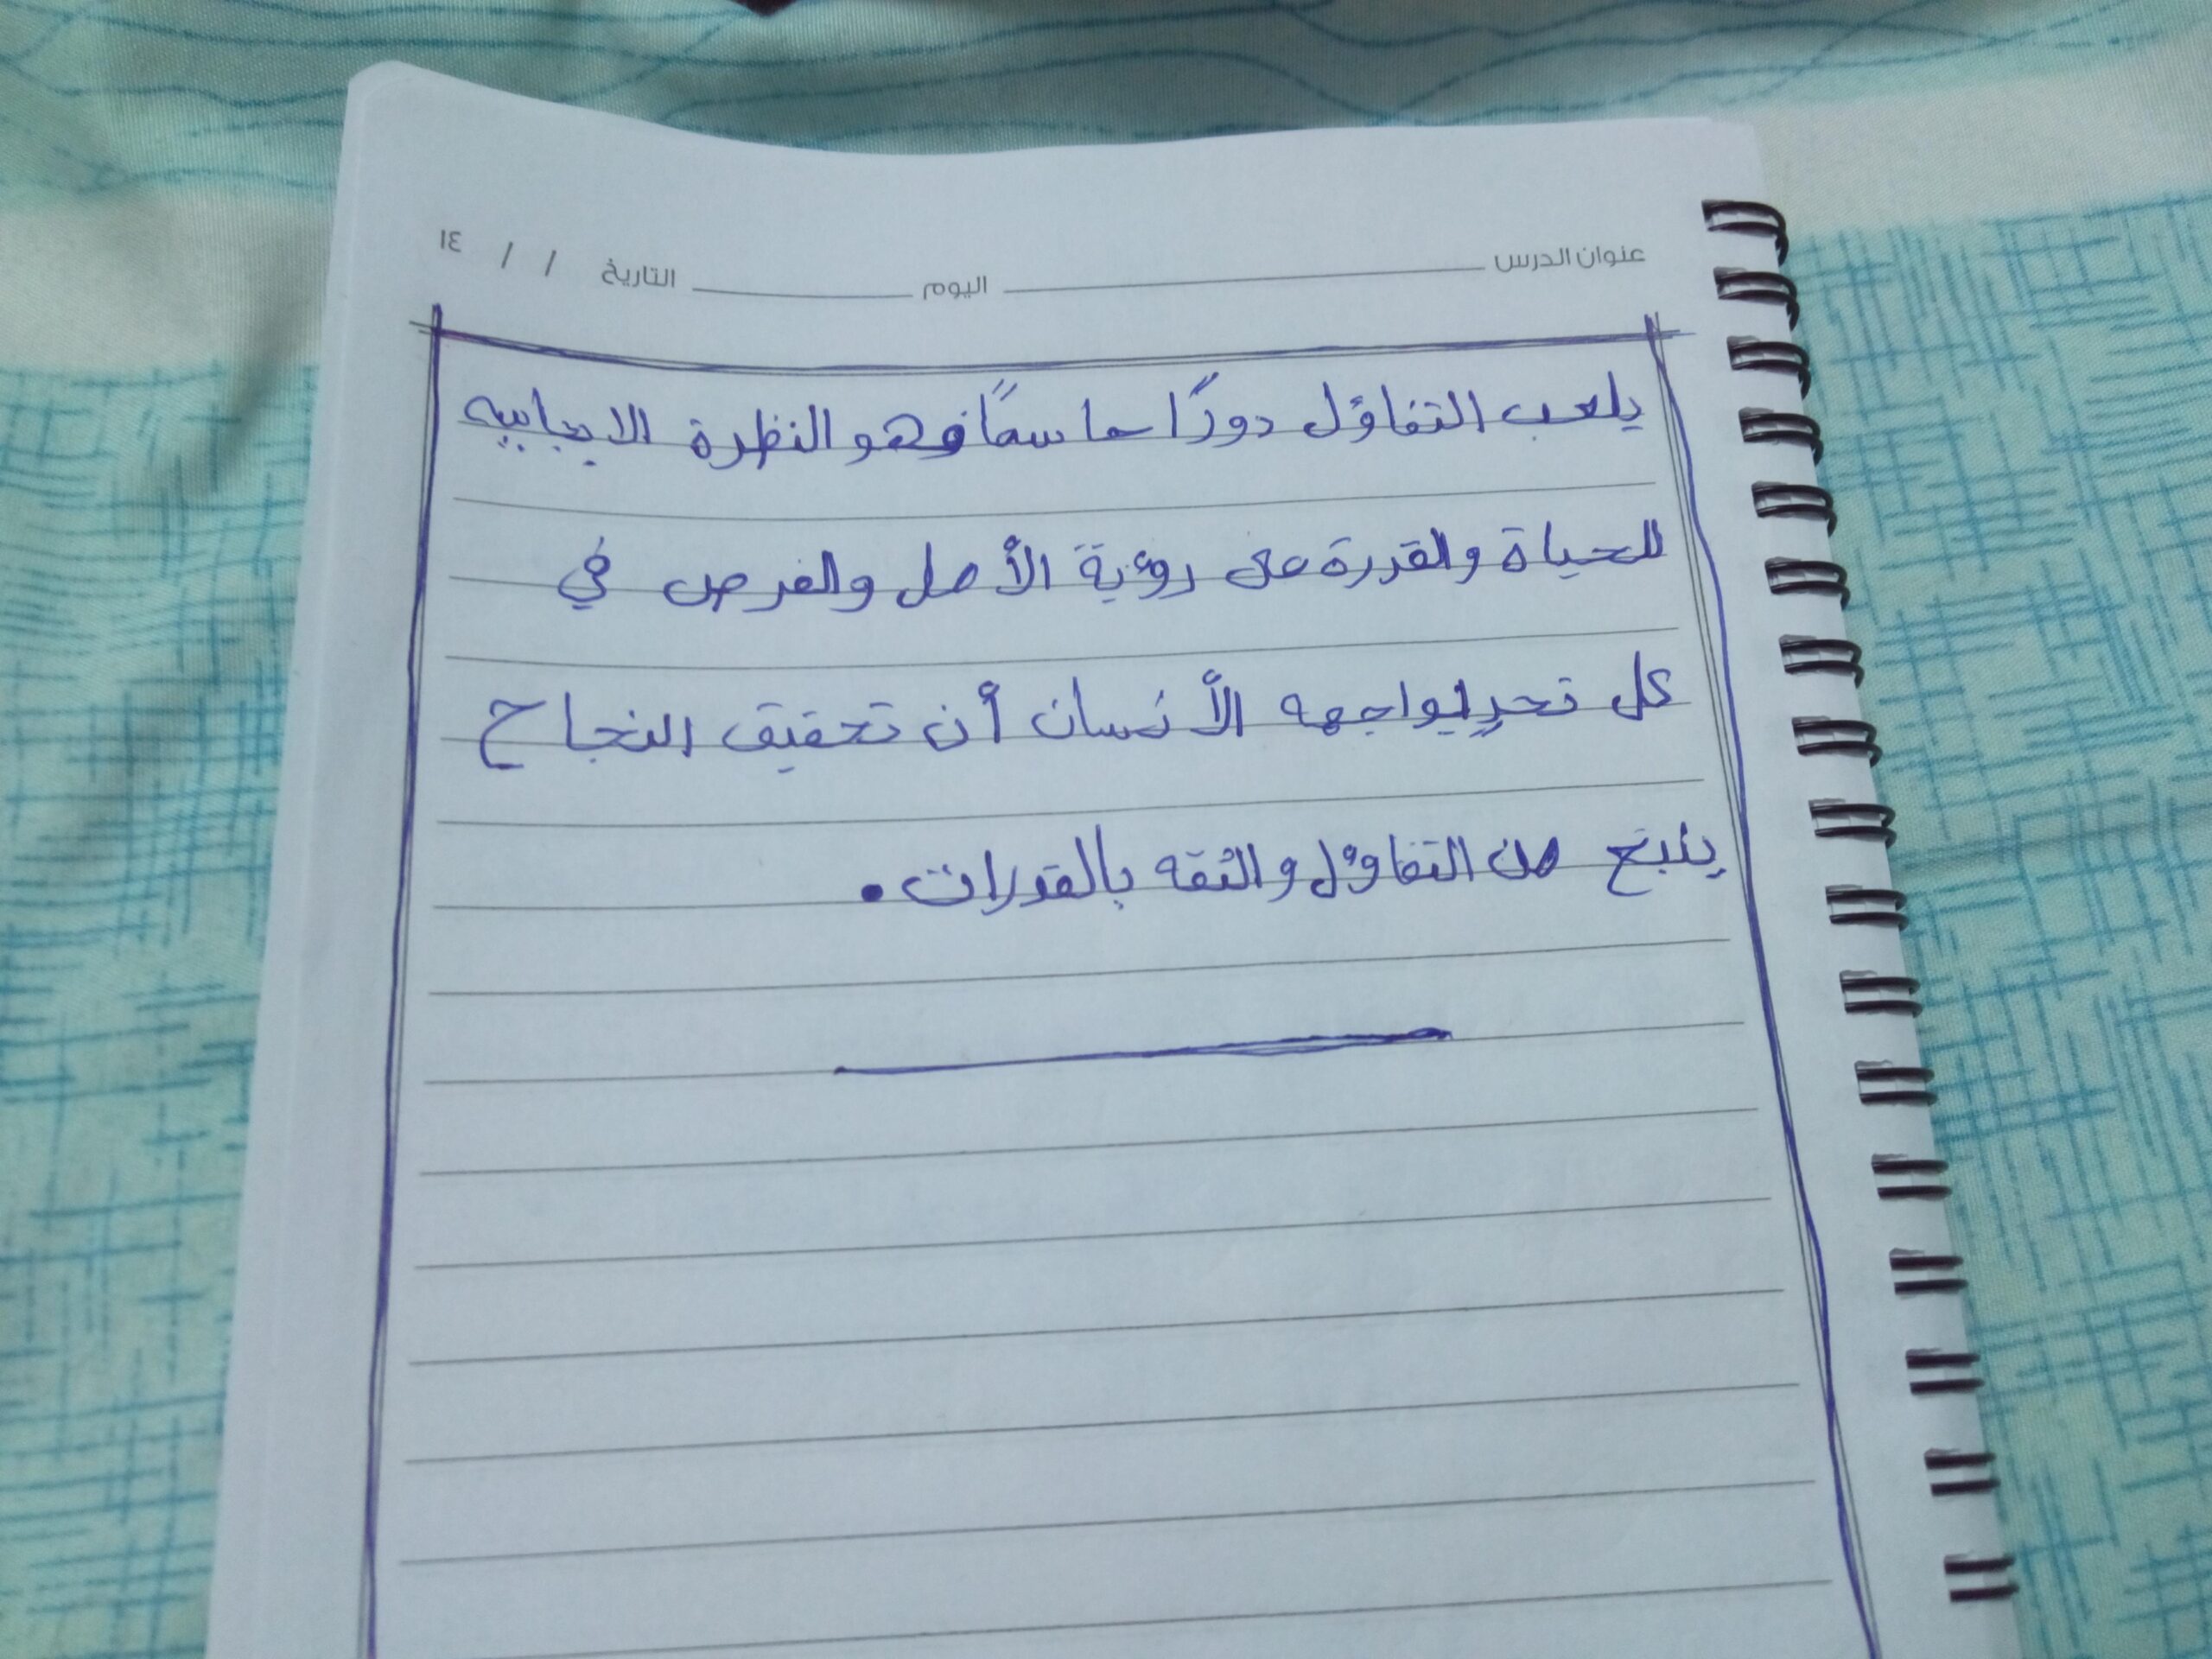 عنوان الدرس اليوم التاريخ / / ١٤
يلعب التفاؤل دورًا حاسمًا فهو النظرة الايجابيه
للحياة والقدرة على رؤية الأمل والفرص في
كل تحدٍ يواجهه الأنسان أن تحقيق النجاح
ينبع من التفاؤل والثقه بالقدرات.